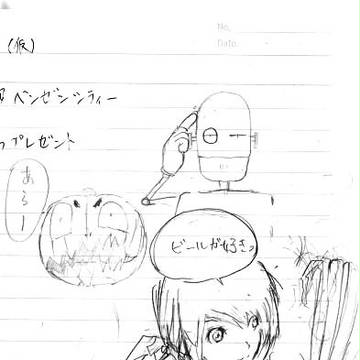 No.
Date
(仮)
ベンゼンシティー
プレゼント
あるー
ビールが好きっ